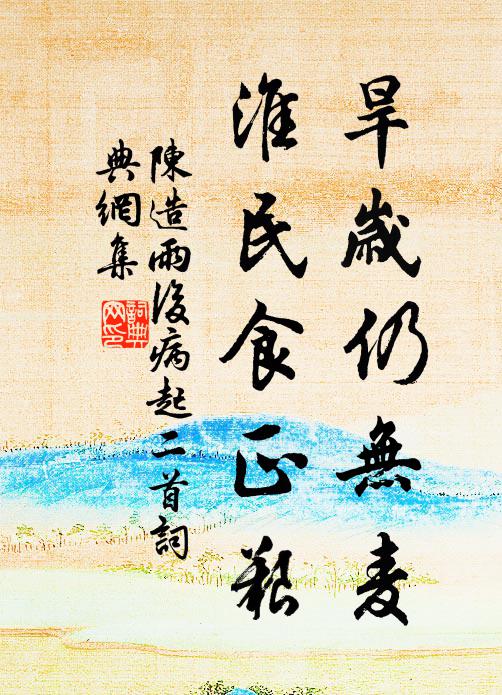 旱歲仍無麦
淮民食正艱
陳造雨後病起二首詞
典網集
詞典
网印